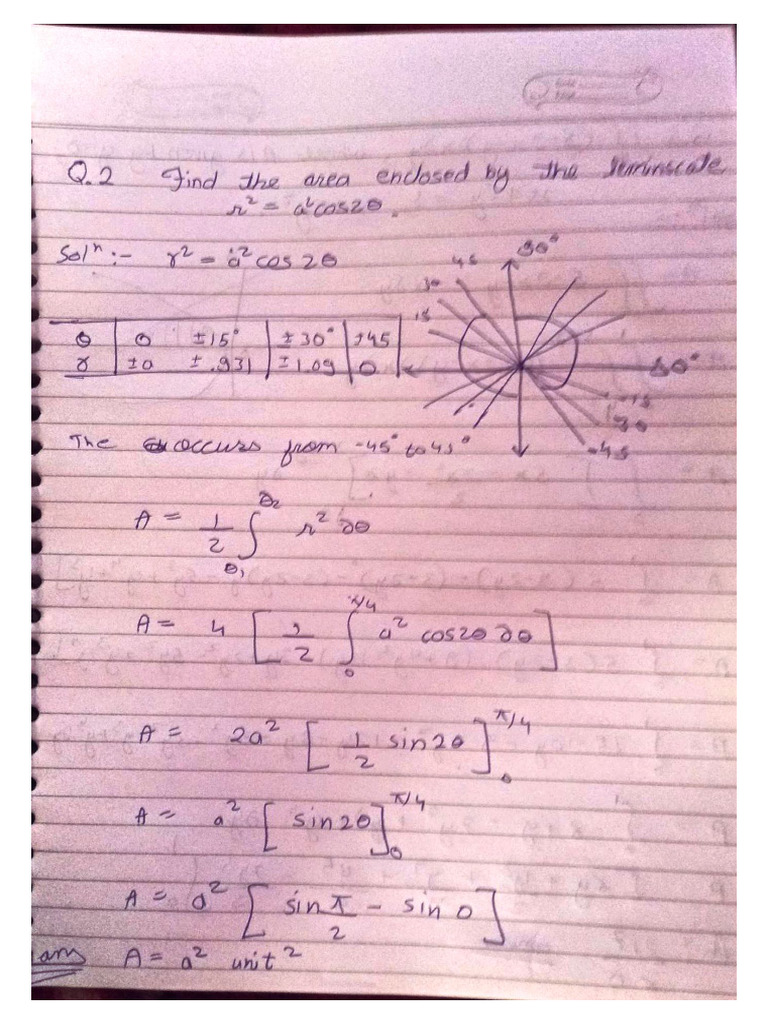 Q.2 Find the area enclosed by the leminscate
r² = a²cos2θ.
Solⁿ :- r² = a² cos 2θ
90°
45
30
15
θ 0 ±15° ±30° ±45
r ±a ±.931 ±1.09 0
-15
-30
-45
The occurs from -45° to 45°
A = 1/2 ∫_θ₁^θ₂ r² ∂θ
A = 4 [ 1/2 ∫_0^π/4 a² cos2θ ∂θ ]
A = 2a² [ 1/2 sin2θ ]_0^π/4
A = a² [ sin2θ ]_0^π/4
A = a² [ sin π/2 - sin 0 ]
ans A = a² unit²